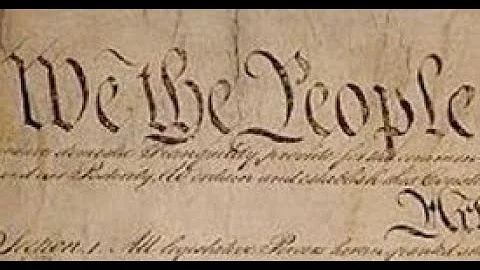 We the People
insure domestic Tranquility, provide for the common
and our Posterity, do ordain and establish this Constit
Art
Section. 1. All legislative Powers herein granted sh